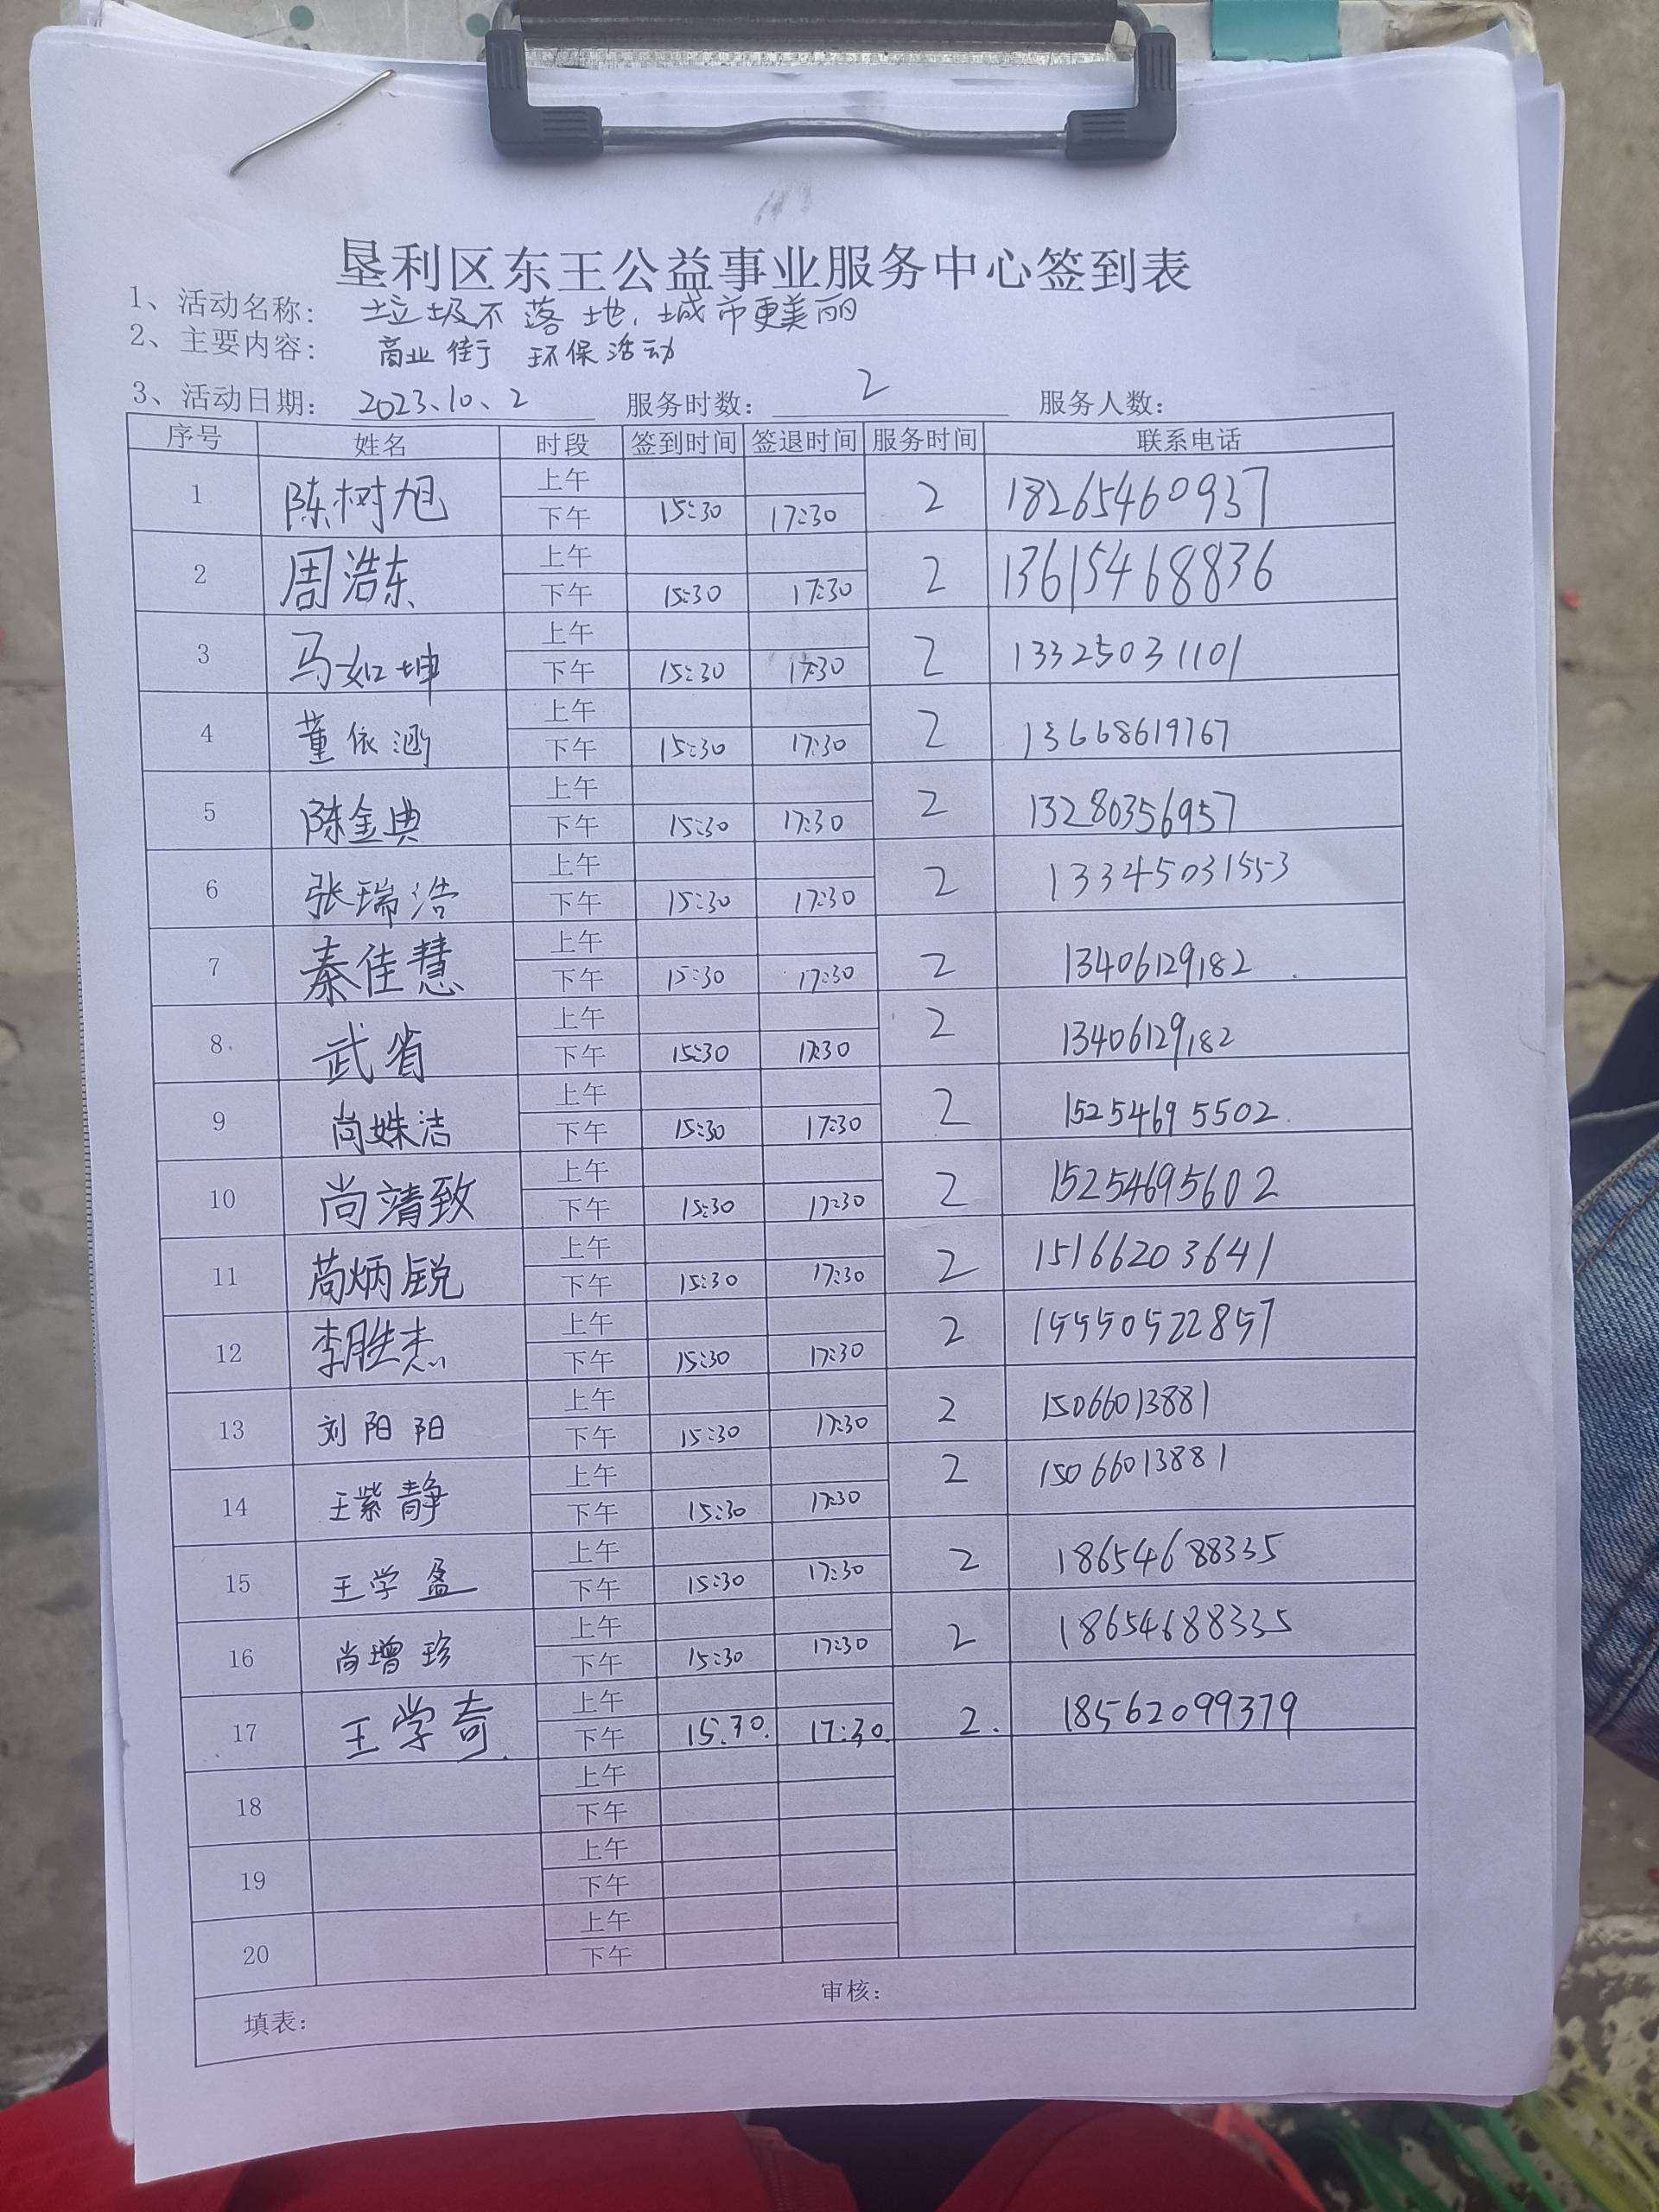 垦利区东王公益事业服务中心签到表
1、活动名称: 垃圾不落地,城市更美丽
2、主要内容: 商业街 环保活动
3、活动日期: 2023、10、2 服务时数: 2 服务人数:
序号 姓名 时段 签到时间 签退时间 服务时间 联系电话
上午
1 陈树旭 下午 15:30 17:30 2 18265460937
上午
2 周浩东 下午 15:30 17:30 2 13615468836
上午
3 马如坤 下午 15:30 17:30 2 13325031101
上午
4 董依涵 下午 15:30 17:30 2 13668619767
上午
5 陈金典 下午 15:30 17:30 2 13280356957
上午
6 张瑞浩 下午 15:30 17:30 2 13345031553
上午
7 秦佳慧 下午 15:30 17:30 2 13406129182
上午
8 武省 下午 15:30 17:30 2 13406129182
上午
9 尚姝洁 下午 15:30 17:30 2 15254695502
上午
10 尚靖致 下午 15:30 17:30 2 15254695602
上午
11 苟炳锐 下午 15:30 17:30 2 15166203641
上午
12 李胜杰 下午 15:30 17:30 2 15550522857
上午
13 刘阳阳 下午 15:30 17:30 2 15066013881
上午
14 王紫静 下午 15:30 17:30 2 15066013881
上午
15 王学盈 下午 15:30 17:30 2 18654688335
上午
16 尚增珍 下午 15:30 17:30 2 18654688335
上午
17 王学奇 下午 15:30 17:30 2. 18562099379
上午
18 下午
上午
19 下午
上午
20 下午
填表: 审核: